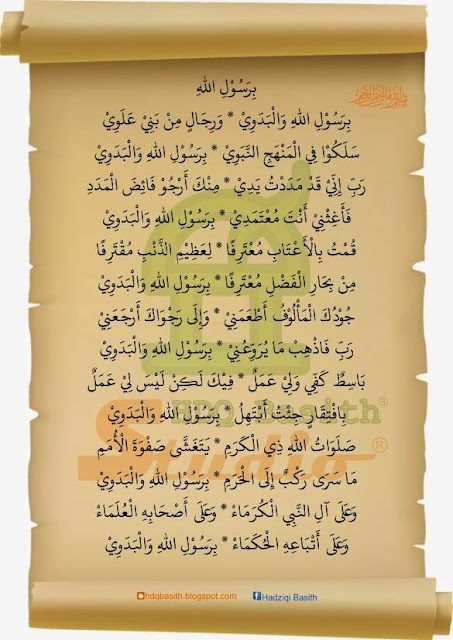 بِرَسُوْلِ اللهِ
بِرَسُوْلِ اللهِ وَالْبَدَوِيْ * وَرِجَالٍ مِنْ بَنِيْ عَلَوِيْ
سَلَكُوْا فِي الْمَنْهَجِ النَّبَوِيْ * بِرَسُوْلِ اللهِ وَالْبَدَوِيْ
رَبِّ إِنِّيْ قَدْ مَدَدْتُ يَدِيْ * مِنْكَ أَرْجُوْ فَائِضَ الْمَدَدِ
فَأَغِثْنِيْ أَنْتَ مُعْتَمَدِيْ * بِرَسُوْلِ اللهِ وَالْبَدَوِيْ
قُمْتُ بِالْأَعْتَابِ مُعْتَرِفًا * لِعَظِيْمِ الذَّنْبِ مُقْتَرِفًا
مِنْ بِحَارِ الْفَضْلِ مُغْتَرِفًا * بِرَسُوْلِ اللهِ وَالْبَدَوِيْ
جُوْدُكَ الْمَأْلُوْفُ أَطْعَمَنِيْ * وَإِلَى رَجْوَاكَ أَرْجَعَنِيْ
رَبِّ فَاذْهِبْ مَا يُرَوِّعُنِيْ * بِرَسُوْلِ اللهِ وَالْبَدَوِيْ
بَاسِطٌ كَفِّي وَلِيْ عَمَلٌ * فِيْكَ لَكِنْ لَيْسَ لِيْ عَمَلٌ
بِافْتِقَارٍ جِئْتُ أَبْتَهِلُ * بِرَسُوْلِ اللهِ وَالْبَدَوِيْ
HDQ Basith®
صَلَوَاتُ اللهِ ذِي الْكَرَمِ * يَتَغَشَّى صَفْوَةَ الْأُمَمِ
Studio®
مَا سَرَى رَكْبٌ إِلَى الْحَرَمِ * بِرَسُوْلِ اللهِ وَالْبَدَوِيْ
وَعَلَى آلِ النَّبِي الْكُرَمَاءْ * وَعَلَى أَصْحَابِهِ الْعُلَمَاءْ
وَعَلَى أَتْبَاعِهِ الْحُكَمَاءْ * بِرَسُوْلِ اللهِ وَالْبَدَوِيْ
hdqbasith.blogspot.com Hadziqi Basith